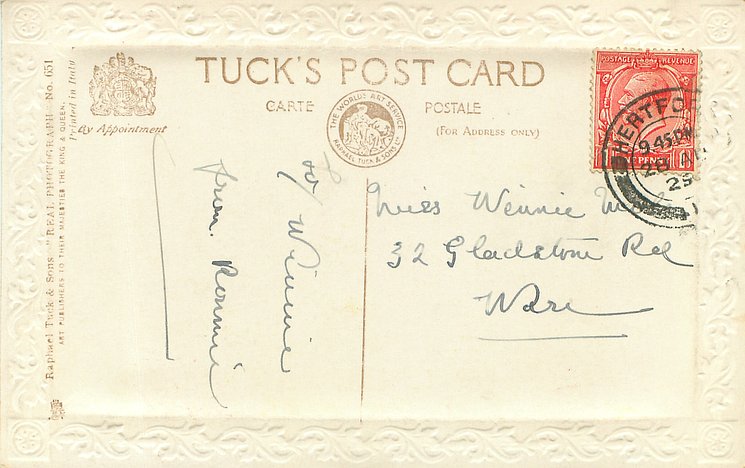 TUCK'S POST CARD
CARTE POSTALE
(FOR ADDRESS ONLY)
By Appointment
THE WORLD'S ART SERVICE
RAPHAEL TUCK & SONS LTD
Raphael Tuck & Sons' "REAL PHOTOGRAPH" No. 651
ART PUBLISHERS TO THEIR MAJESTIES THE KING & QUEEN.
Printed in Italy
POSTAGE REVENUE
ONE PENNY
HERTFO
9.45 PM
28 A
25
to Winnie
from. Ronnie
Miss Winnie
32 Gladstone Rd
Ware